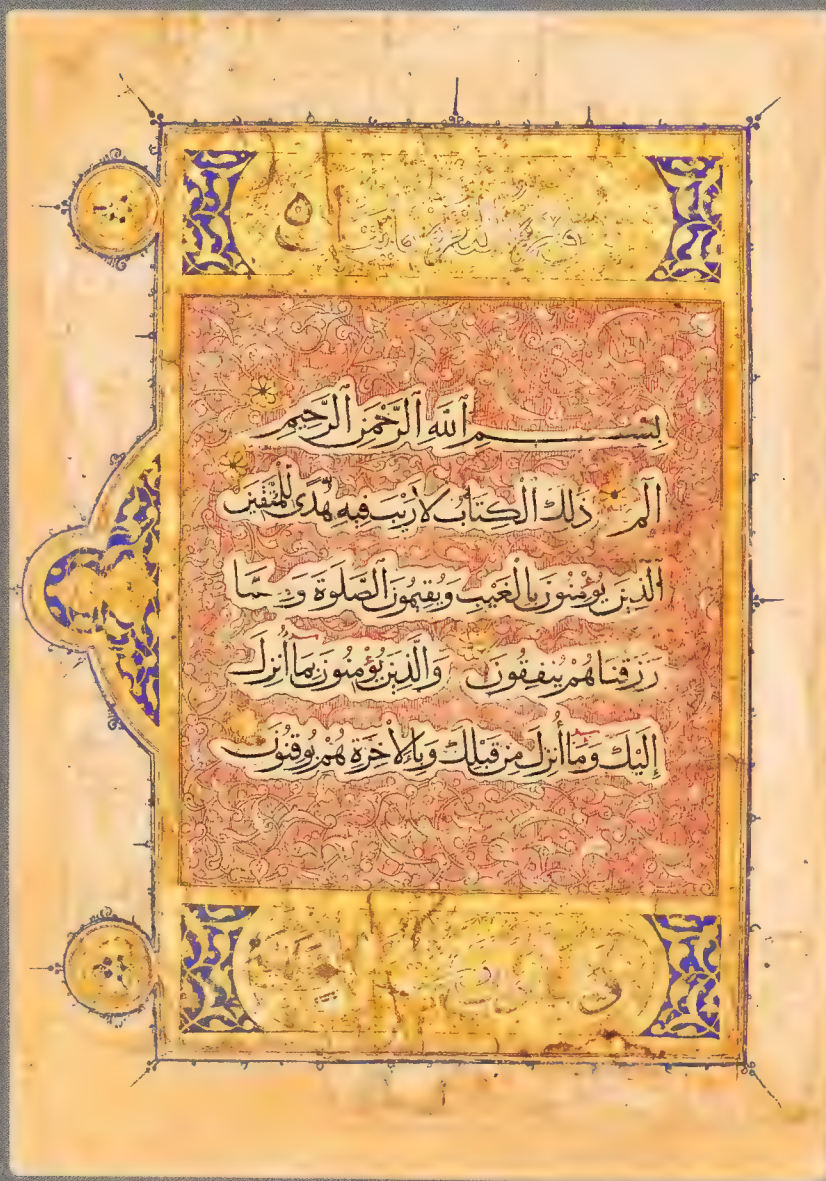 بِسْمِ ٱللَّهِ ٱلرَّحْمَٰنِ ٱلرَّحِيمِ
الٓمٓ ذَٰلِكَ الْكِتَابُ لَا رَيْبَ فِيهِ هُدًى لِلْمُتَّقِينَ
الَّذِينَ يُؤْمِنُونَ بِالْغَيْبِ وَيُقِيمُونَ الصَّلَوٰةَ وَمِمَّا
رَزَقْنَاهُمْ يُنْفِقُونَ وَالَّذِينَ يُؤْمِنُونَ بِمَا أُنزِلَ
إِلَيْكَ وَمَا أُنزِلَ مِن قَبْلِكَ وَبِالْآخِرَةِ هُمْ يُوقِنُونَ